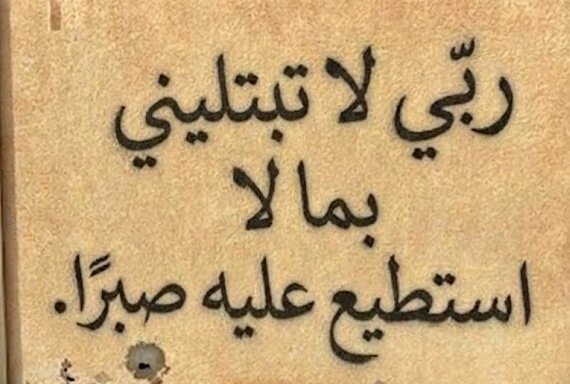 ربّي لا تبتليني
بما لا
استطيع عليه صبرًا.